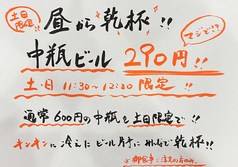 土日限定
昼から乾杯!!
マジで!?
中瓶ビール 290円!!
土・日 11:30〜13:00 限定!!
通常600円の中瓶を土日限定で!!
キンキンに冷えたビール片手に乾杯!!
※御食事ご注文の方のみ。